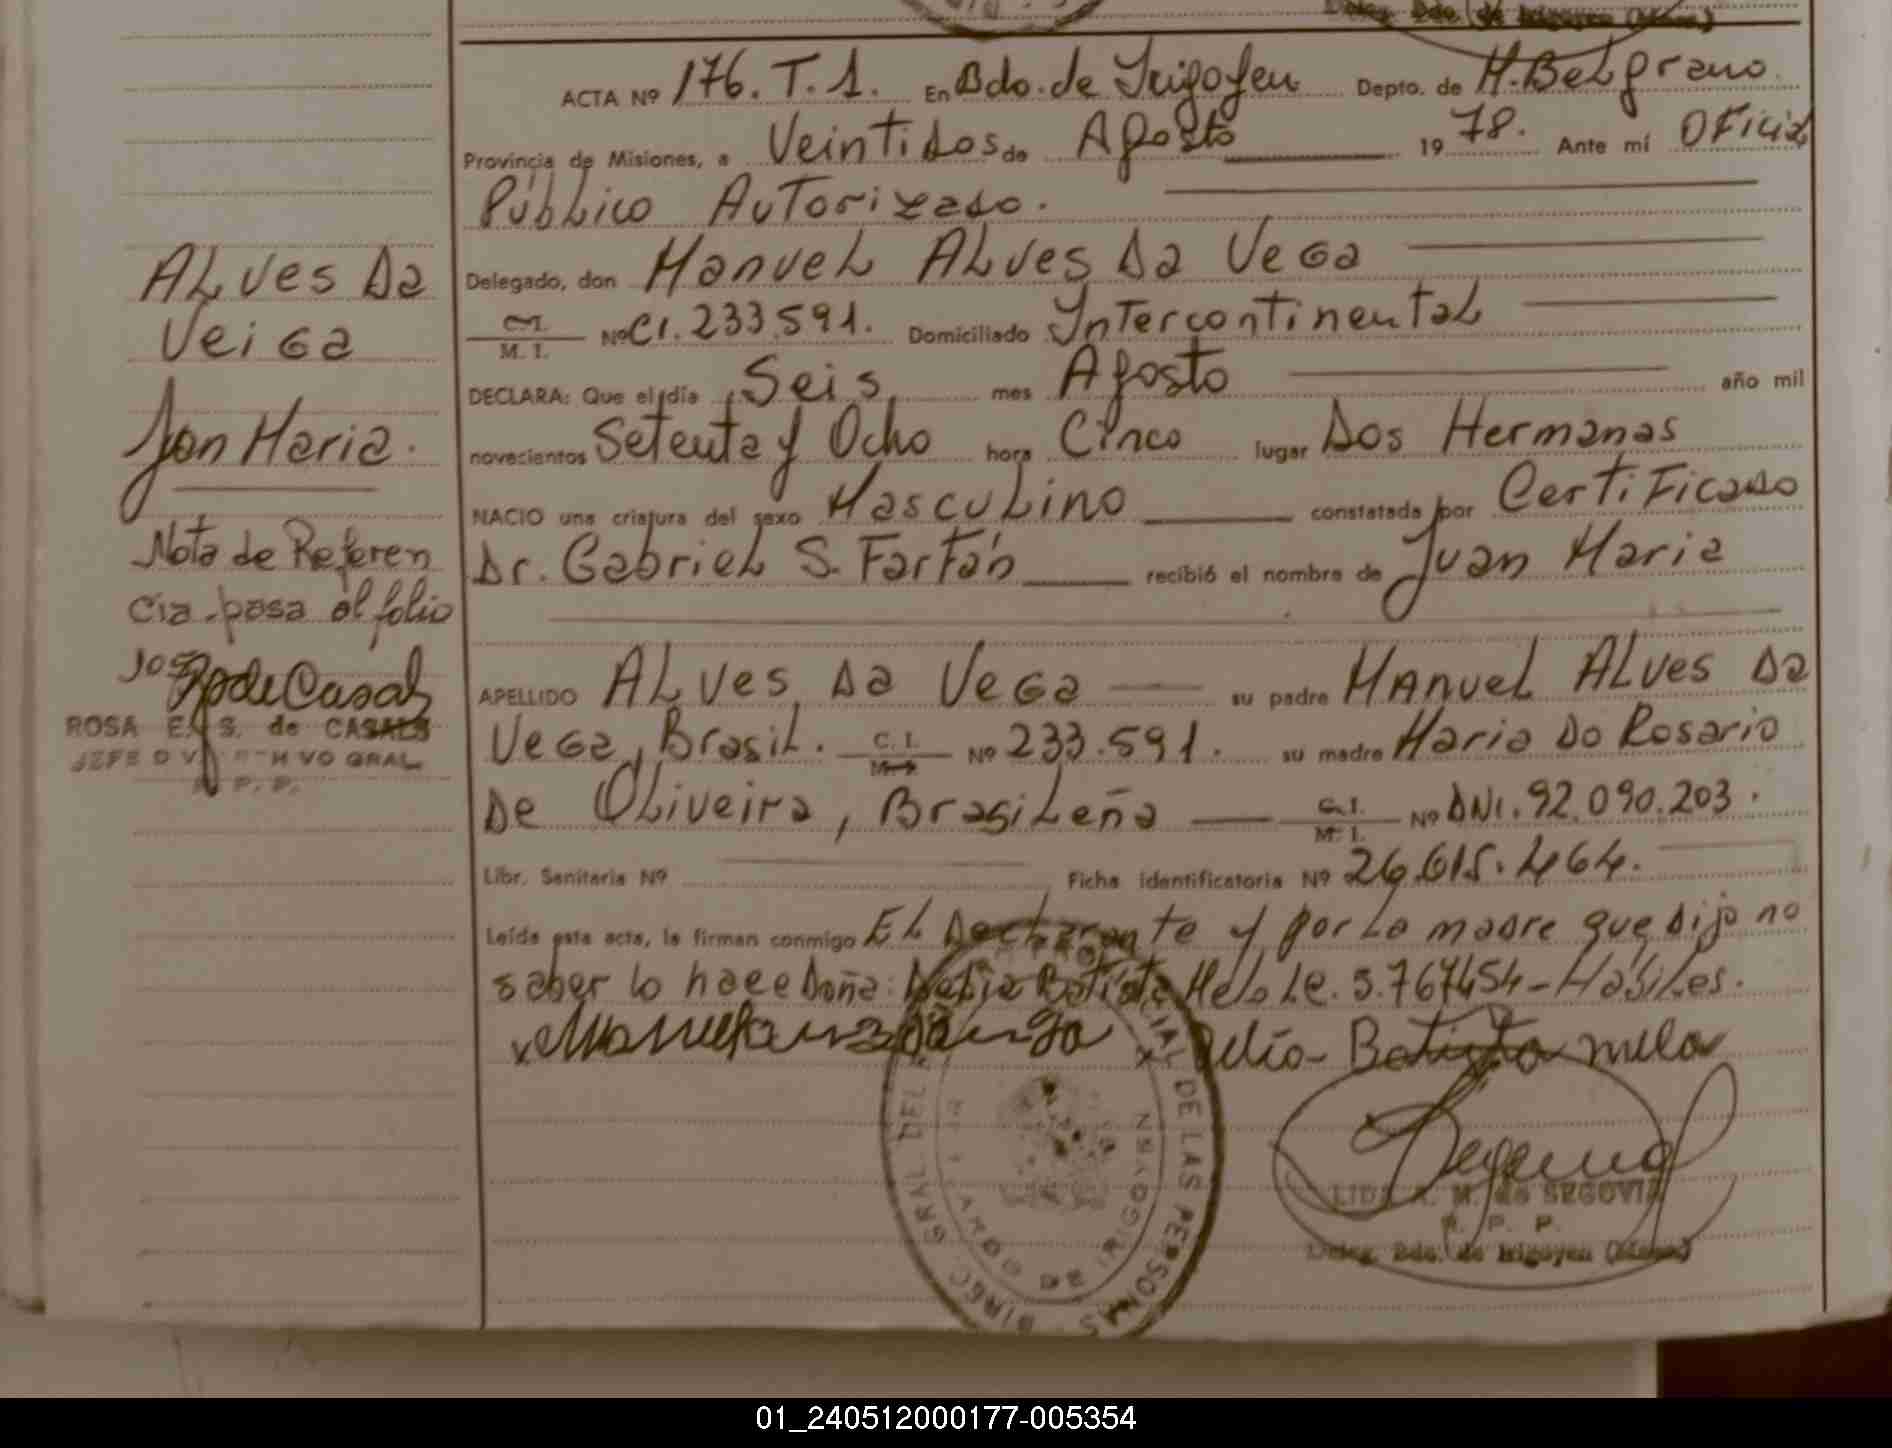 Deleg. Bdo. de Irigoyen (Mnes)
ACTA Nº 176. T. 1. En Bdo. de Irigoyen Depto. de M. Belgrano.
Provincia de Misiones, a Veintidos de Agosto 1978. Ante mí Oficial
Público Autorizado.
Delegado, don Manuel Alves Da Vega
C.I. M. I. Nº CI. 233.591. Domiciliado Intercontinental
DECLARA: Que el día Seis mes Agosto año mil
novecientos Setenta y Ocho hora Cinco lugar Dos Hermanas
NACIO una criatura del sexo Masculino constatada por Certificado
Dr. Gabriel S. Farfán recibió el nombre de Juan Maria
APELLIDO Alves Da Vega su padre Manuel Alves Da
Vega, Brasil. C. I. M. I. Nº 233.591. su madre Maria Do Rosario
De Oliveira, Brasileña C. I. M. I. Nº DNI. 92.090.203.
Libr. Sanitaria Nº Ficha identificatoria Nº 26.615.464.
Leída esta acta, la firman conmigo El Declarante y por la madre que dijo no
saber lo hace Doña: Delia Batista Melo Le. 5.767454 - Hábiles.
x x Delia Batista melo
DIREC. GRAL. DEL DE LAS PERSONAS
BERNARDO DE IRIGOYEN
LIDA A. M. de SEGOVIA
R. P. P.
Deleg. Bdo. de Irigoyen (Mnes)
Alves Da
Veiga
Jon Maria.
Nota de Referen
cia - pasa al folio
ROSA E. S. de CASALS
JEFE DIV. ARCHIVO GRAL
R. P. P.
01_240512000177-005354